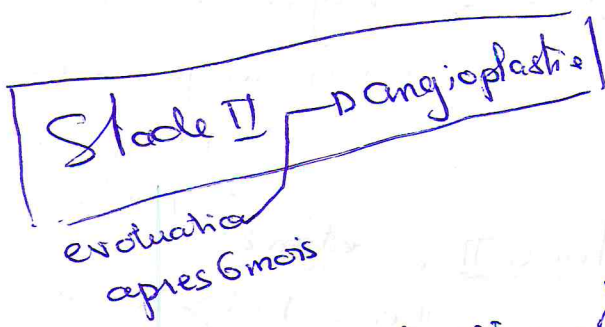 Stade II → angioplastie
evaluation
apres 6 mois